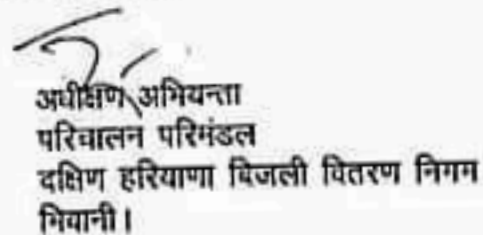 अधीक्षण अभियन्ता
परिचालन परिमंडल
दक्षिण हरियाणा बिजली वितरण निगम
भिवानी।